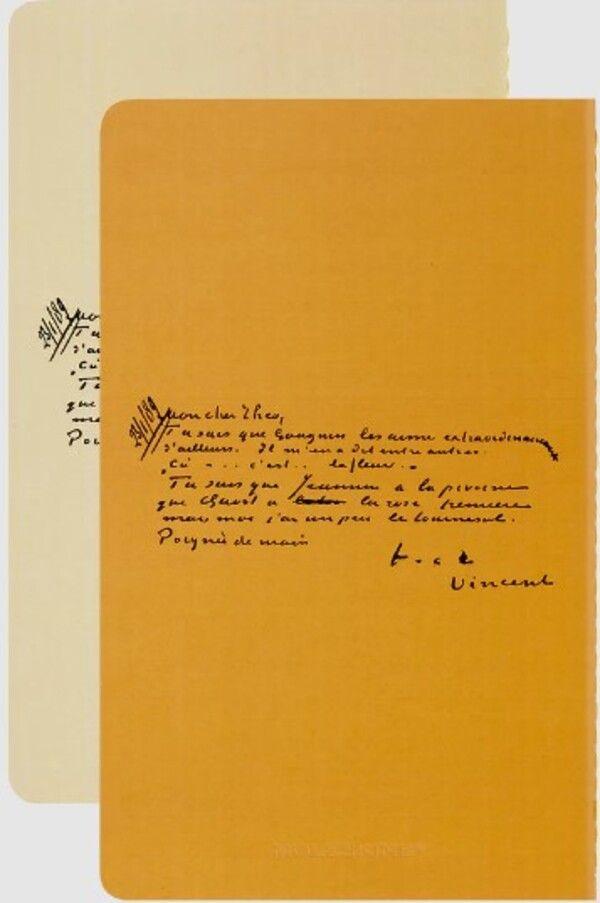 23/1/89
mon cher Theo,
Tu sais que Gauguin les aime extraordinairement
d'ailleurs. Il m'en a dit entre autres.
„Ça - .. c'est .. la fleur.“
Tu sais que Jeannin a la pivoine
que Quost a la rose tremiere
mais moi j'ai un peu le tournesol.
Poignée de main
t. à t
Vincent
23/1/89
mon
Tu
d'ai
„Ça
Tu
que
ma
Poi